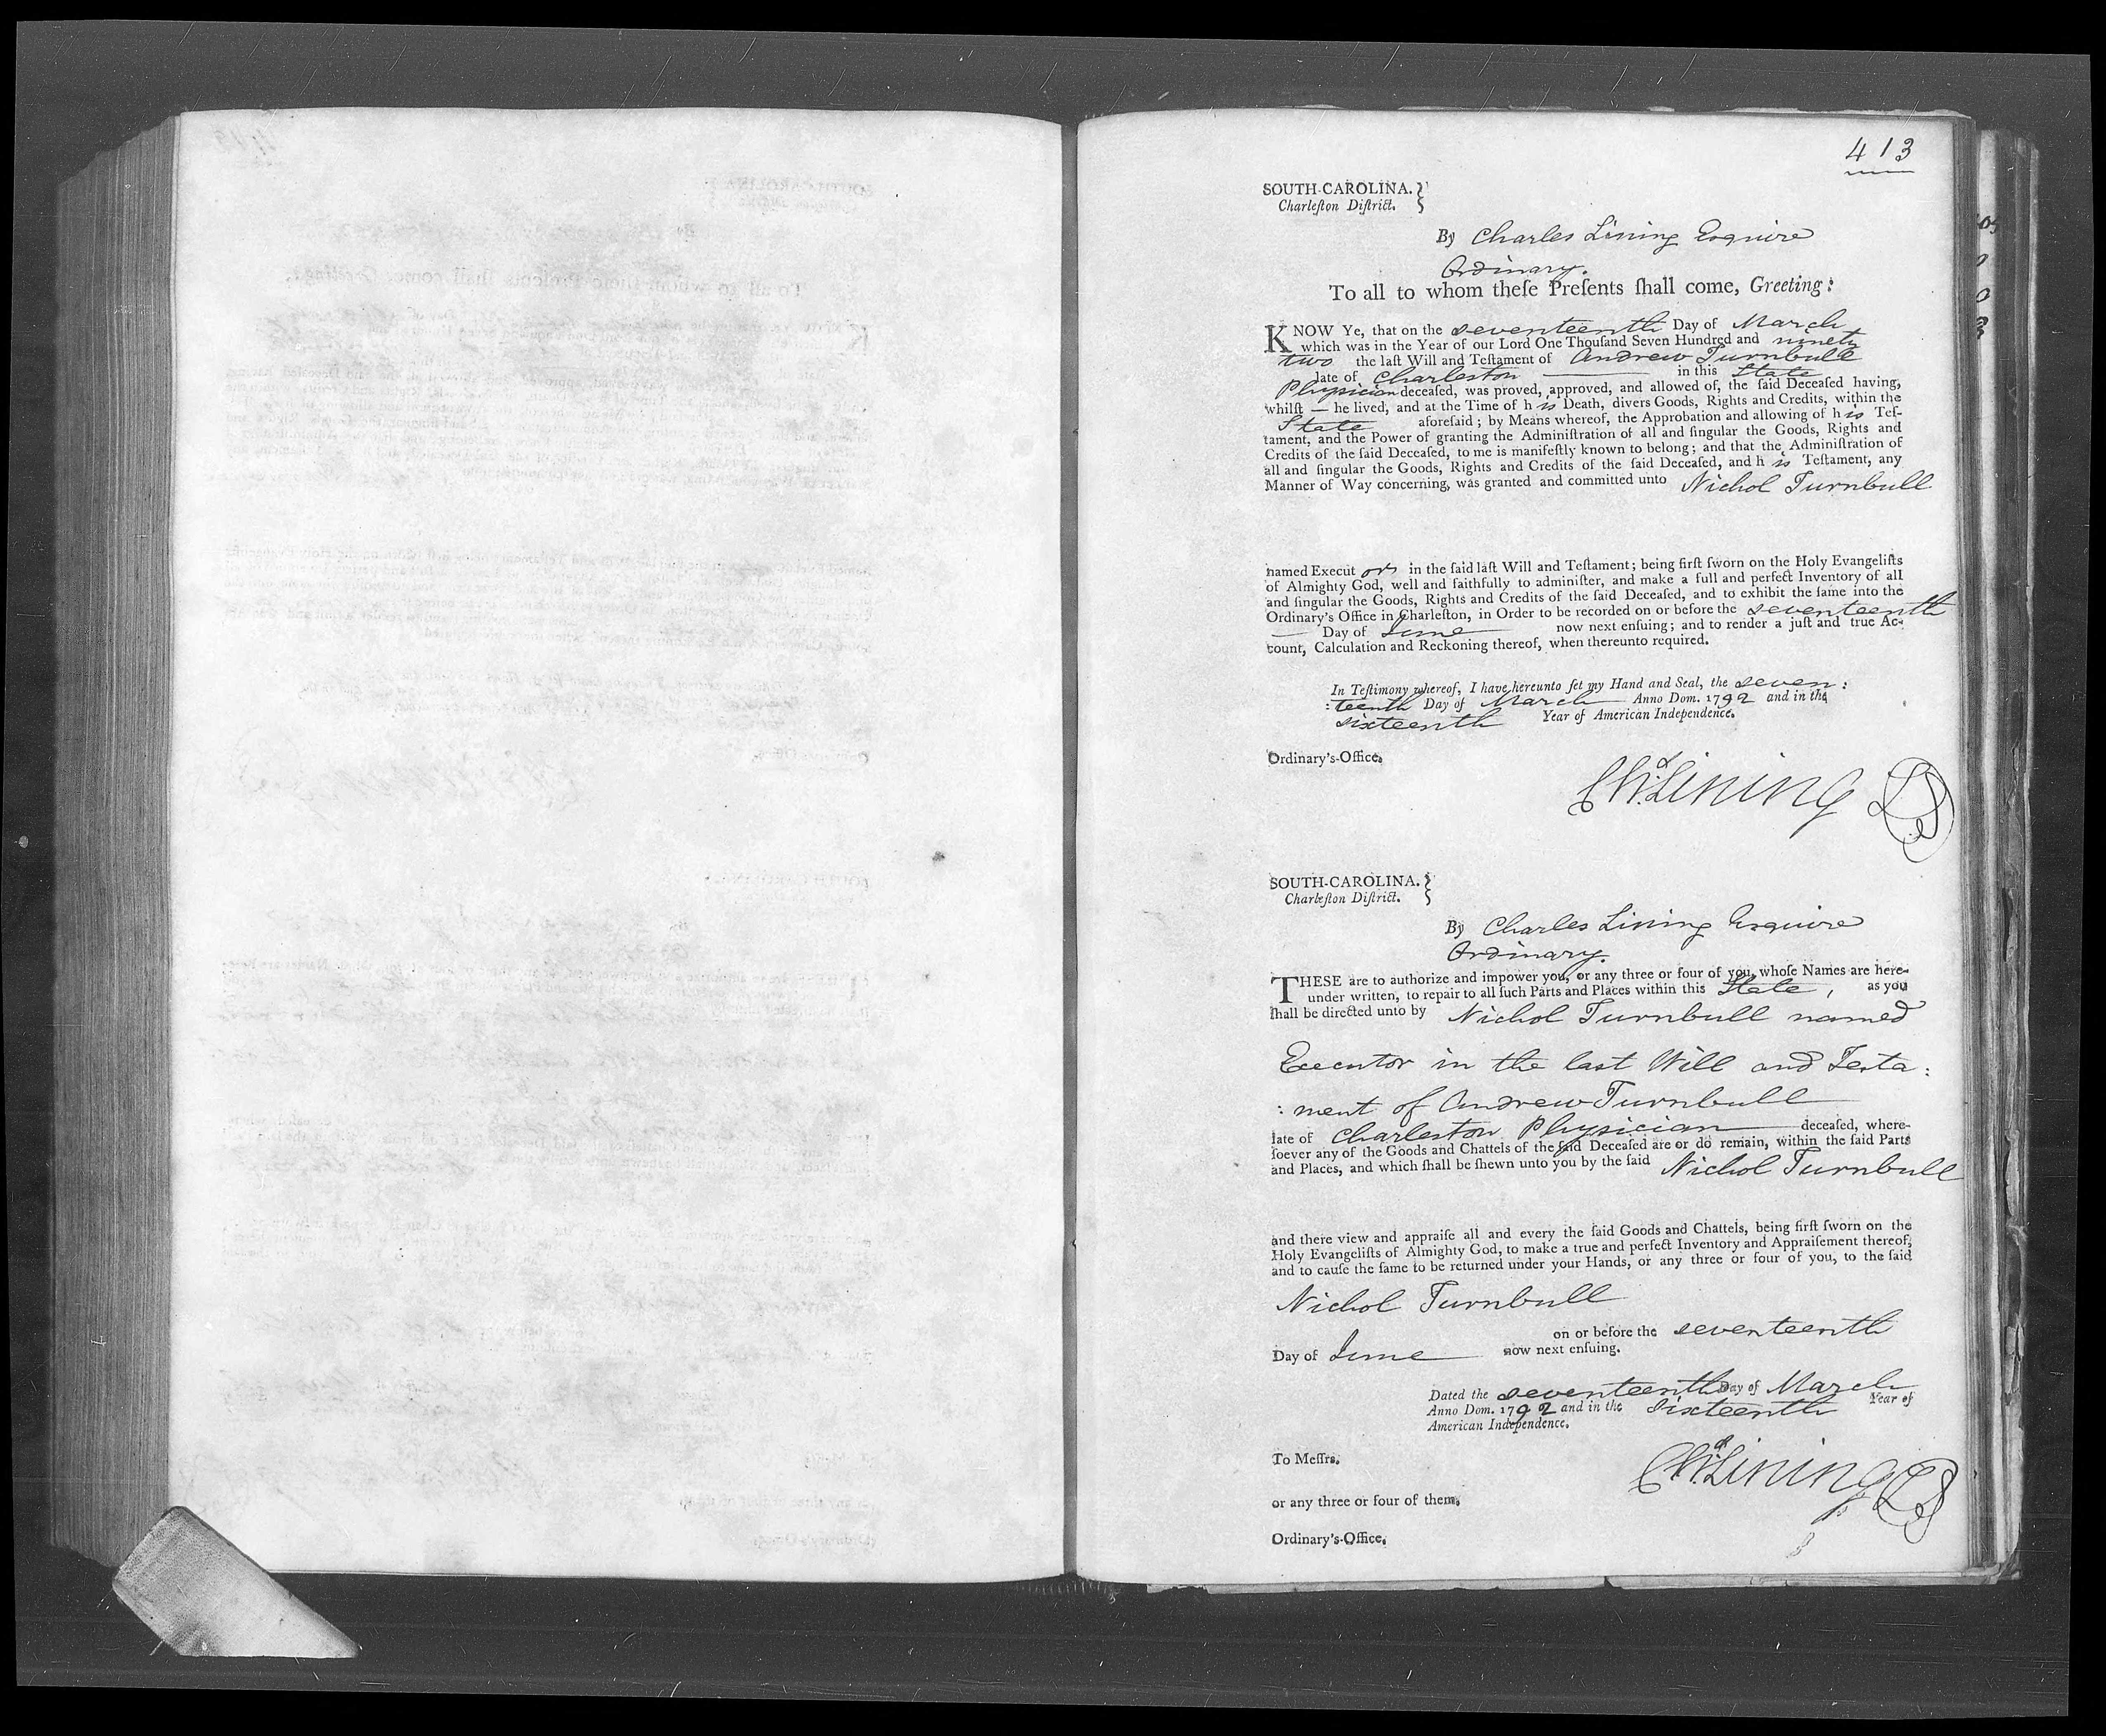 413
SOUTH-CAROLINA. }
Charleſton Diſtrict. }
By Charles Lining Esquire
Ordinary.
To all to whom theſe Preſents ſhall come, Greeting:
KNOW Ye, that on the seventeenth Day of March
which was in the Year of our Lord One Thouſand Seven Hundred and ninety
two the laſt Will and Teſtament of Andrew Turnbull
late of Charleston in this State
Physician deceaſed, was proved, approved, and allowed of, the ſaid Deceaſed having,
whilſt — he lived, and at the Time of his Death, divers Goods, Rights and Credits, within the
State aforeſaid; by Means whereof, the Approbation and allowing of his Teſ-
tament, and the Power of granting the Adminiſtration of all and ſingular the Goods, Rights and
Credits of the ſaid Deceaſed, to me is manifeſtly known to belong; and that the Adminiſtration of
all and ſingular the Goods, Rights and Credits of the ſaid Deceaſed, and his Teſtament, any
Manner of Way concerning, was granted and committed unto Nichol Turnbull
named Executor in the ſaid laſt Will and Teſtament; being firſt ſworn on the Holy Evangeliſts
of Almighty God, well and faithfully to adminiſter, and make a full and perfect Inventory of all
and ſingular the Goods, Rights and Credits of the ſaid Deceaſed, and to exhibit the ſame into the
Ordinary's Office in Charleſton, in Order to be recorded on or before the seventeenth
— Day of June now next enſuing; and to render a juſt and true Ac-
count, Calculation and Reckoning thereof, when thereunto required.
In Teſtimony whereof, I have hereunto ſet my Hand and Seal, the seven:
:teenth Day of March Anno Dom. 1792 and in the
sixteenth Year of American Independence.
Ordinary's-Office.
Chs. Lining LS
SOUTH-CAROLINA. }
Charleſton Diſtrict. }
By Charles Lining Esquire
Ordinary.
THESE are to authorize and impower you, or any three or four of you, whoſe Names are here-
under written, to repair to all ſuch Parts and Places within this State, as you
ſhall be directed unto by Nichol Turnbull named
Executor in the last Will and Testa:
:ment of Andrew Turnbull
late of Charleston Physician deceaſed, where-
ſoever any of the Goods and Chattels of the ſaid Deceaſed are or do remain, within the ſaid Parts
and Places, and which ſhall be ſhewn unto you by the ſaid Nichol Turnbull
and there view and appraiſe all and every the ſaid Goods and Chattels, being firſt ſworn on the
Holy Evangeliſts of Almighty God, to make a true and perfect Inventory and Appraiſement thereof,
and to cauſe the ſame to be returned under your Hands, or any three or four of you, to the ſaid
Nichol Turnbull
on or before the seventeenth
Day of June now next enſuing.
Dated the seventeenth Day of March
Anno Dom. 1792 and in the sixteenth Year of
American Independence.
To Meſſrs.
Chs. Lining LS
or any three or four of them,
Ordinary's-Office.